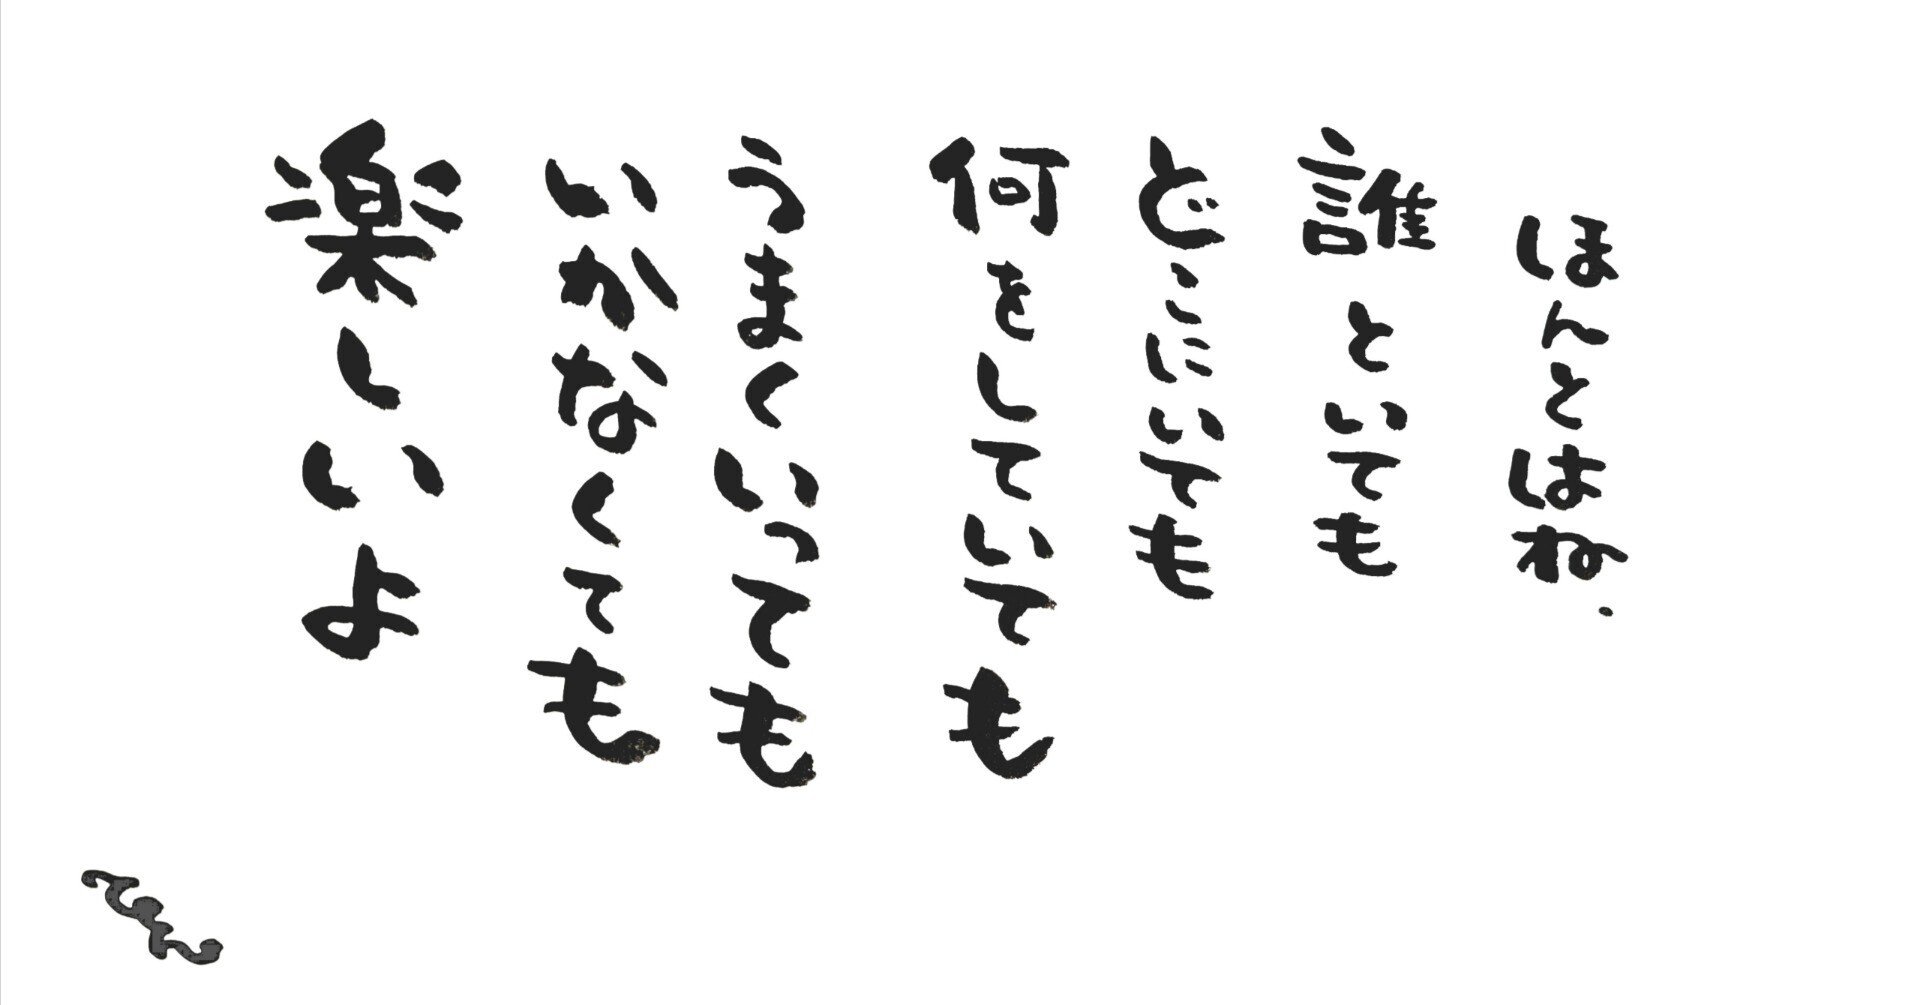 ほんとはね、
誰といても
どこにいても
何をしていても
うまくいっても
いかなくても
楽しいよ